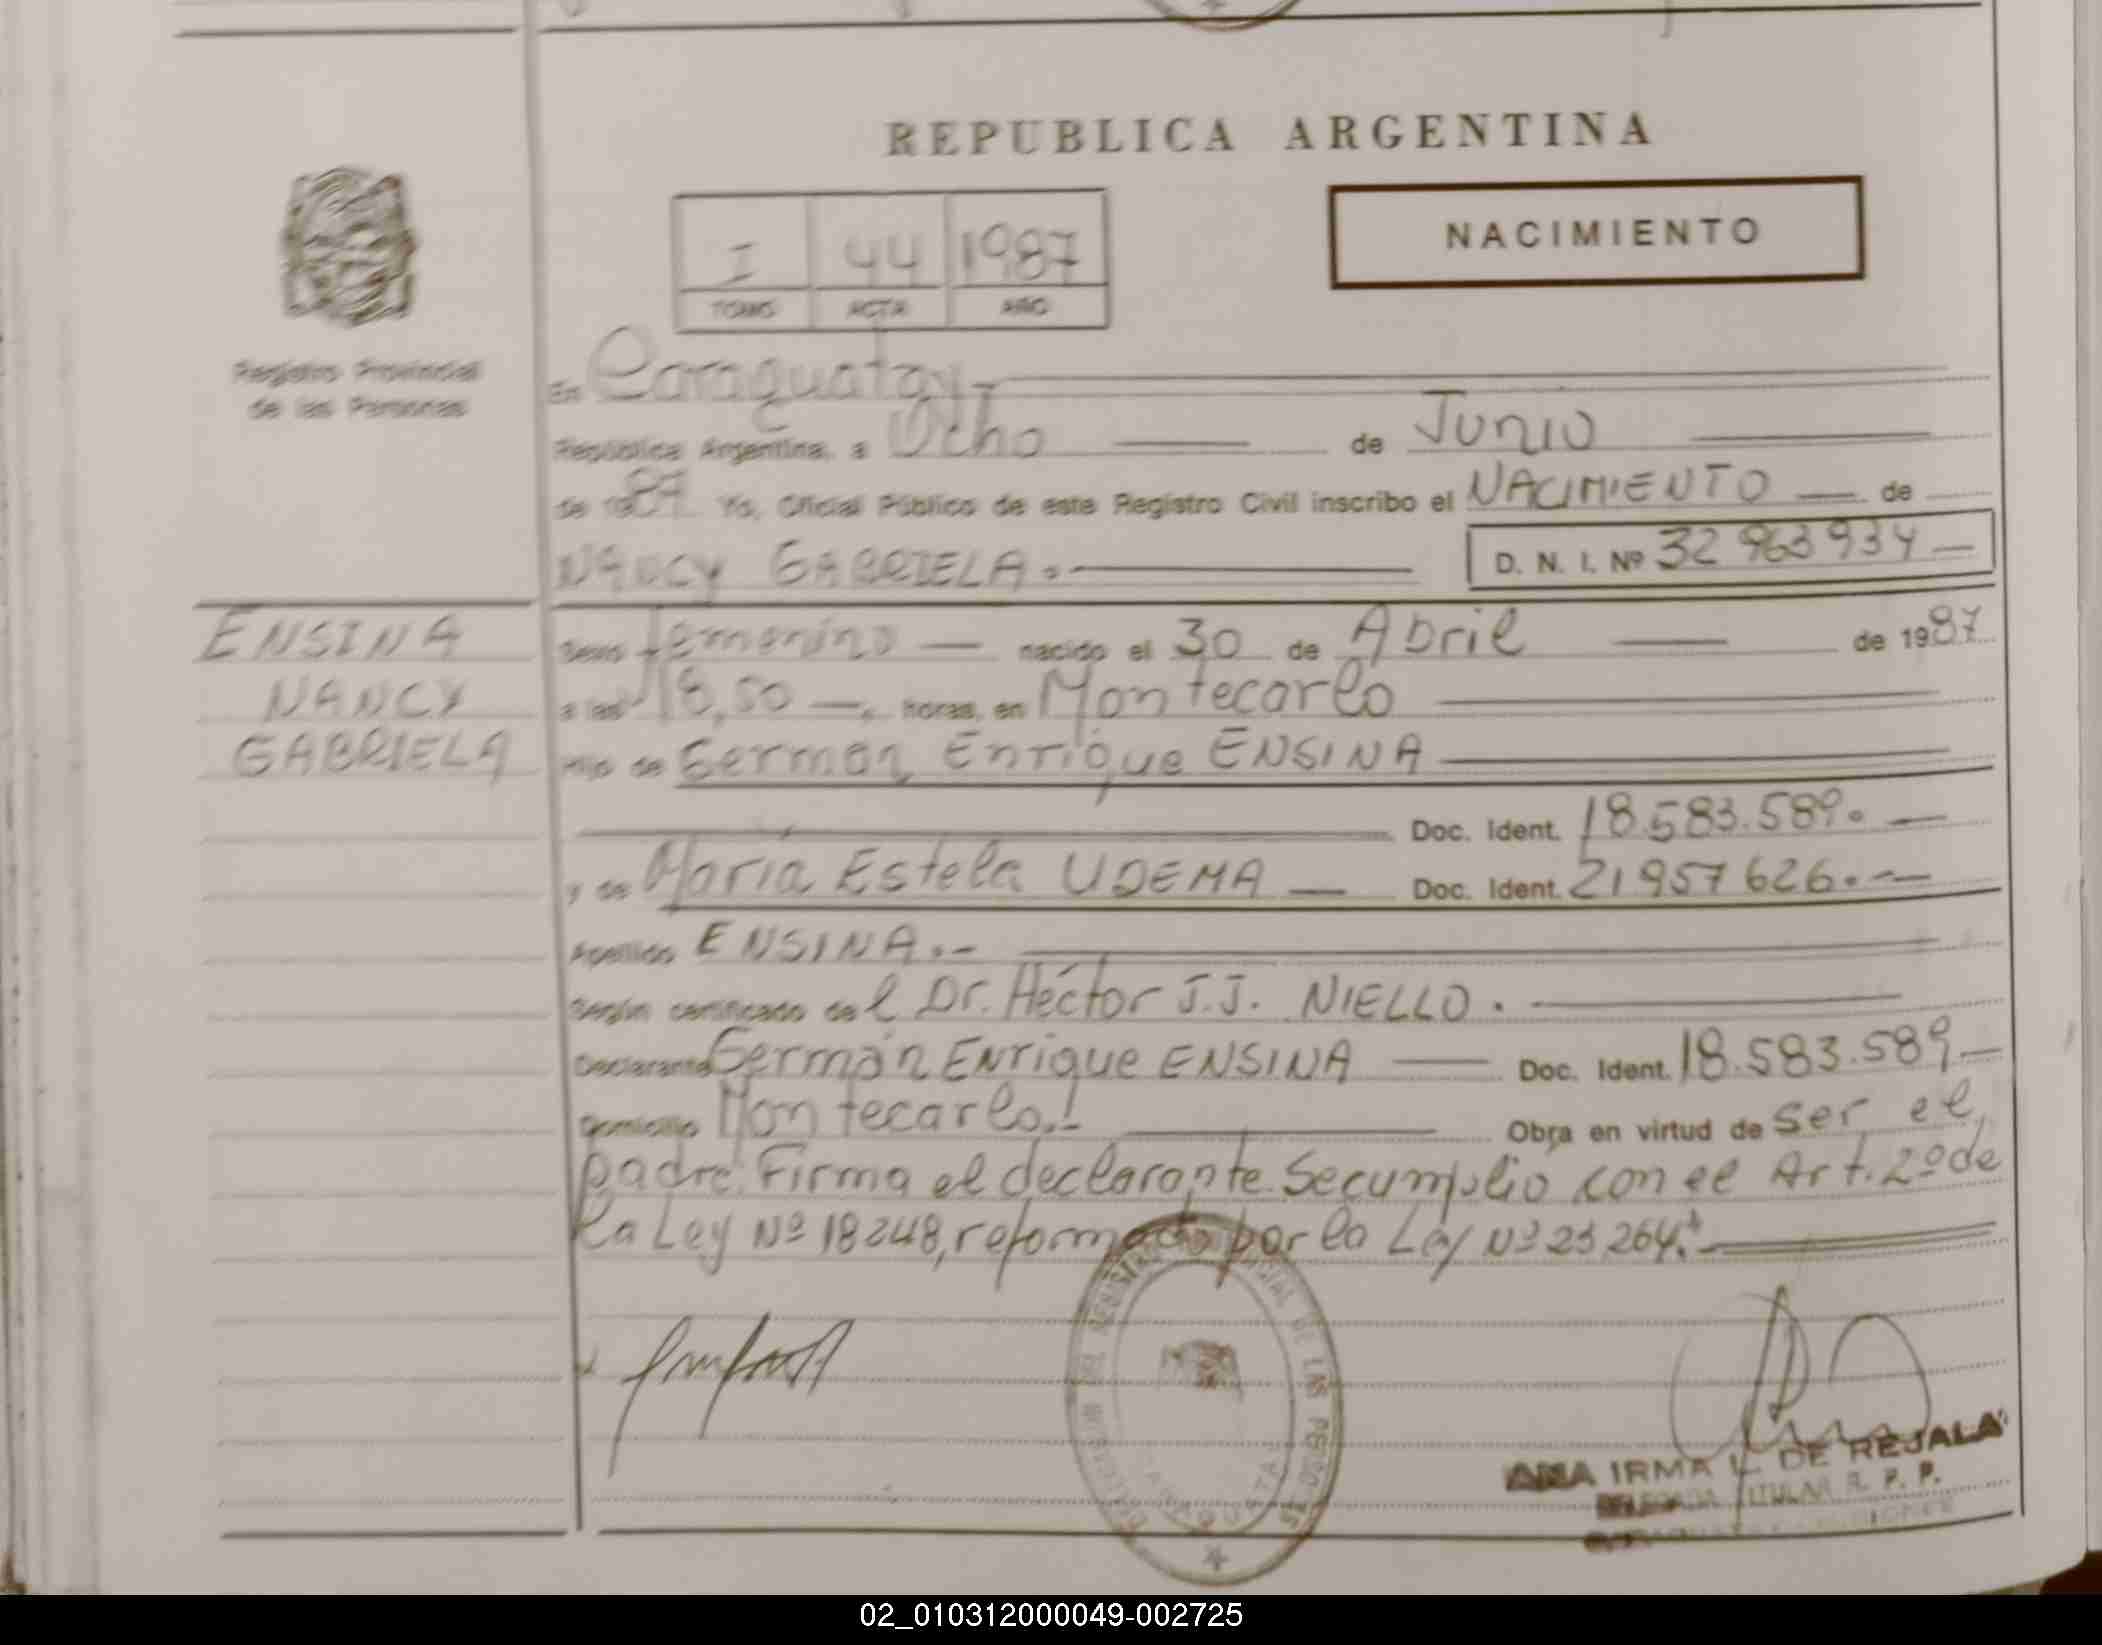 REPUBLICA ARGENTINA
NACIMIENTO
I 44 1987
TOMO ACTA AÑO
Registro Provincial
de las Personas
En Caraguatay
República Argentina, a Ocho de Junio
de 1987 Yo, Oficial Público de este Registro Civil inscribo el NACIMIENTO de
NANCY GABRIELA.
D. N. I. Nº 32 963934
ENSINA
NANCY
GABRIELA
Sexo femenino nacido el 30 de Abril de 1987
a las 18,50 horas, en Montecarlo
Hijo de Germán Enrique ENSINA
Doc. Ident. 18.583.589.
y de María Estela UDEMA Doc. Ident. 21957626.
Apellido ENSINA.-
Según certificado del Dr. Héctor J.J. NIELLO.
Declarante Germán Enrique ENSINA Doc. Ident. 18.583.589
Domicilio Montecarlo. Obra en virtud de ser el
padre. Firma el declarante. Se cumplio con el Art. 2º de
la Ley Nº 18248, reformado por la Ley Nº 23264.
DELEGACION DEL REGISTRO PROVINCIAL DE LAS PERSONAS
CARAGUATAY
ANA IRMA L. DE REJALA
DELEGADA TITULAR R. P. P.
CARAGUATAY - MISIONES
02_010312000049-002725